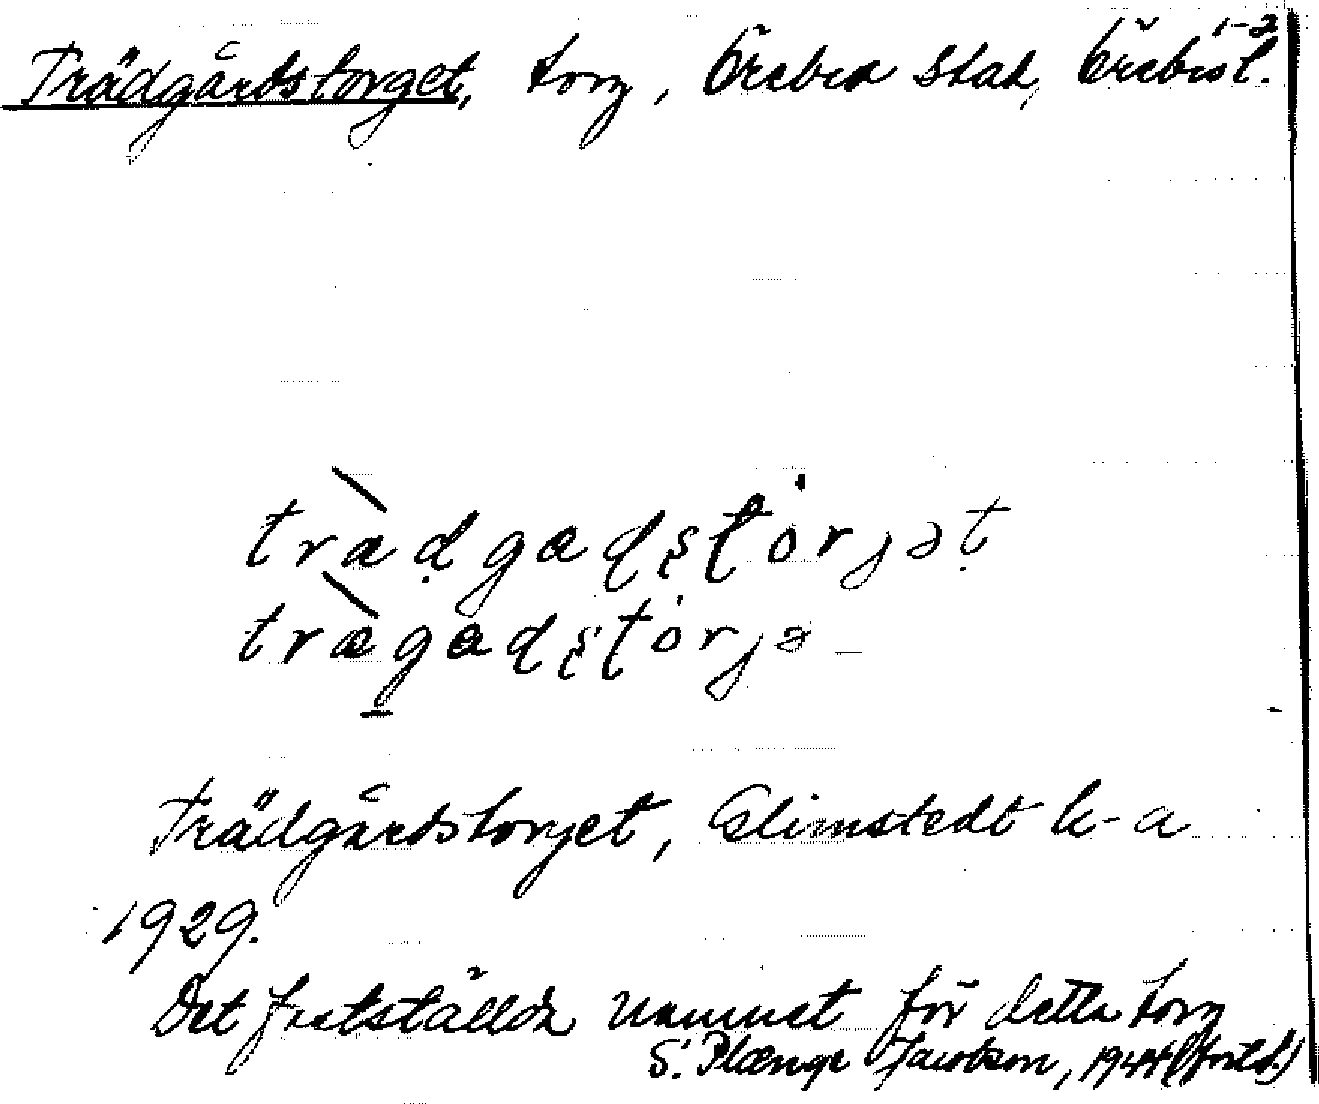 1-2
Trädgårdstorget, torg, Örebro stad, Örebro l.
trædgadʂtórjət
trægadʂtórjə –
Trädgårdstorget, Glimstedt k-a
1929.
Det fastställda namnet för detta torg
S. Plænge Jacobson, 1944 (forts.)